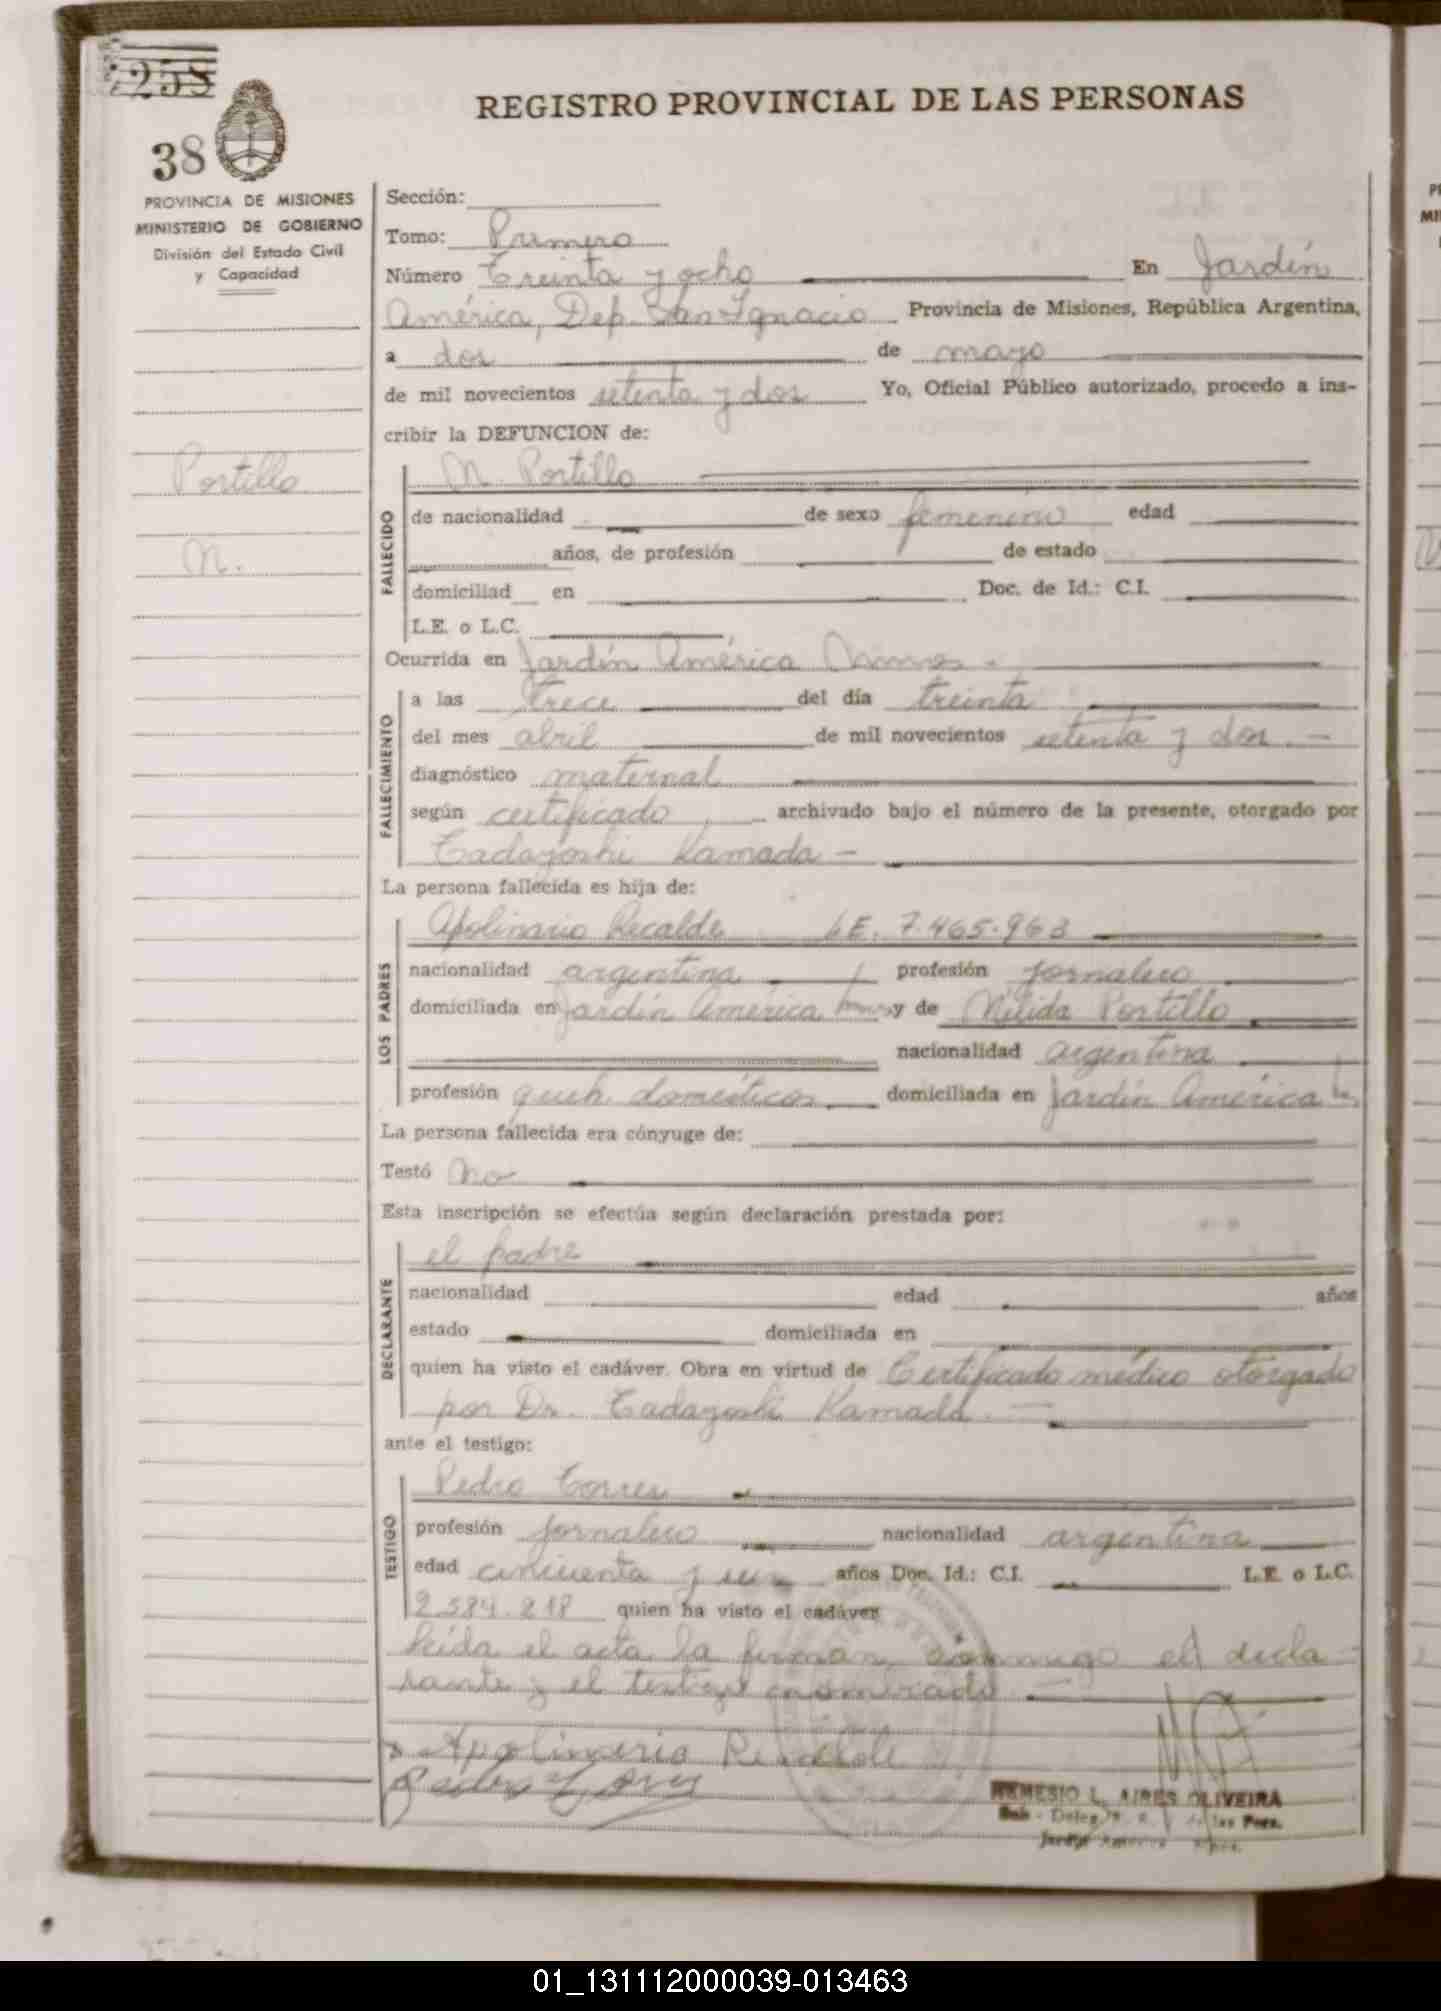 258
38
REGISTRO PROVINCIAL DE LAS PERSONAS
PROVINCIA DE MISIONES
MINISTERIO DE GOBIERNO
División del Estado Civil
y Capacidad
Portillo
N.
Sección:
Tomo: Primero
Número Treinta y ocho En Jardín
América, Dep. San Ignacio Provincia de Misiones, República Argentina,
a dos de mayo
de mil novecientos setenta y dos Yo, Oficial Público autorizado, procedo a ins-
cribir la DEFUNCION de:
FALLECIDO
N. Portillo
de nacionalidad de sexo femenino edad
años, de profesión de estado
domiciliad en Doc. de Id.: C.I.
L.E. o L.C.
Ocurrida en Jardín América Misiones.
FALLECIMIENTO
a las trece del día treinta
del mes abril de mil novecientos setenta y dos.
diagnóstico maternal
según certificado, archivado bajo el número de la presente, otorgado por
Tadayoshi Kamada
La persona fallecida es hija de:
LOS PADRES
Apolinario Recalde L.E. 7.465.963
nacionalidad argentina profesión jornalero
domiciliada en Jardín América y de Nélida Portillo
nacionalidad argentina
profesión queh. domésticos domiciliada en Jardín América
La persona fallecida era cónyuge de:
Testó No
Esta inscripción se efectúa según declaración prestada por:
DECLARANTE
el padre
nacionalidad edad años
estado domiciliada en
quien ha visto el cadáver. Obra en virtud de Certificado médico otorgado
por Dr. Tadayoshi Kamada.
ante el testigo:
TESTIGO
Pedro Torres
profesión jornalero nacionalidad argentina
edad cincuenta y un años Doc. Id.: C.I. L.E. o L.C.
2.584.218 quien ha visto el cadáver
Leída el acta la firman conmigo el decla-
rante y el testigo
Apolinario Recalde
Pedro Torres
NEMESIO L. AIRES OLIVEIRA
Sub - Deleg. de las Pers.
Jardín América
01_131112000039-013463